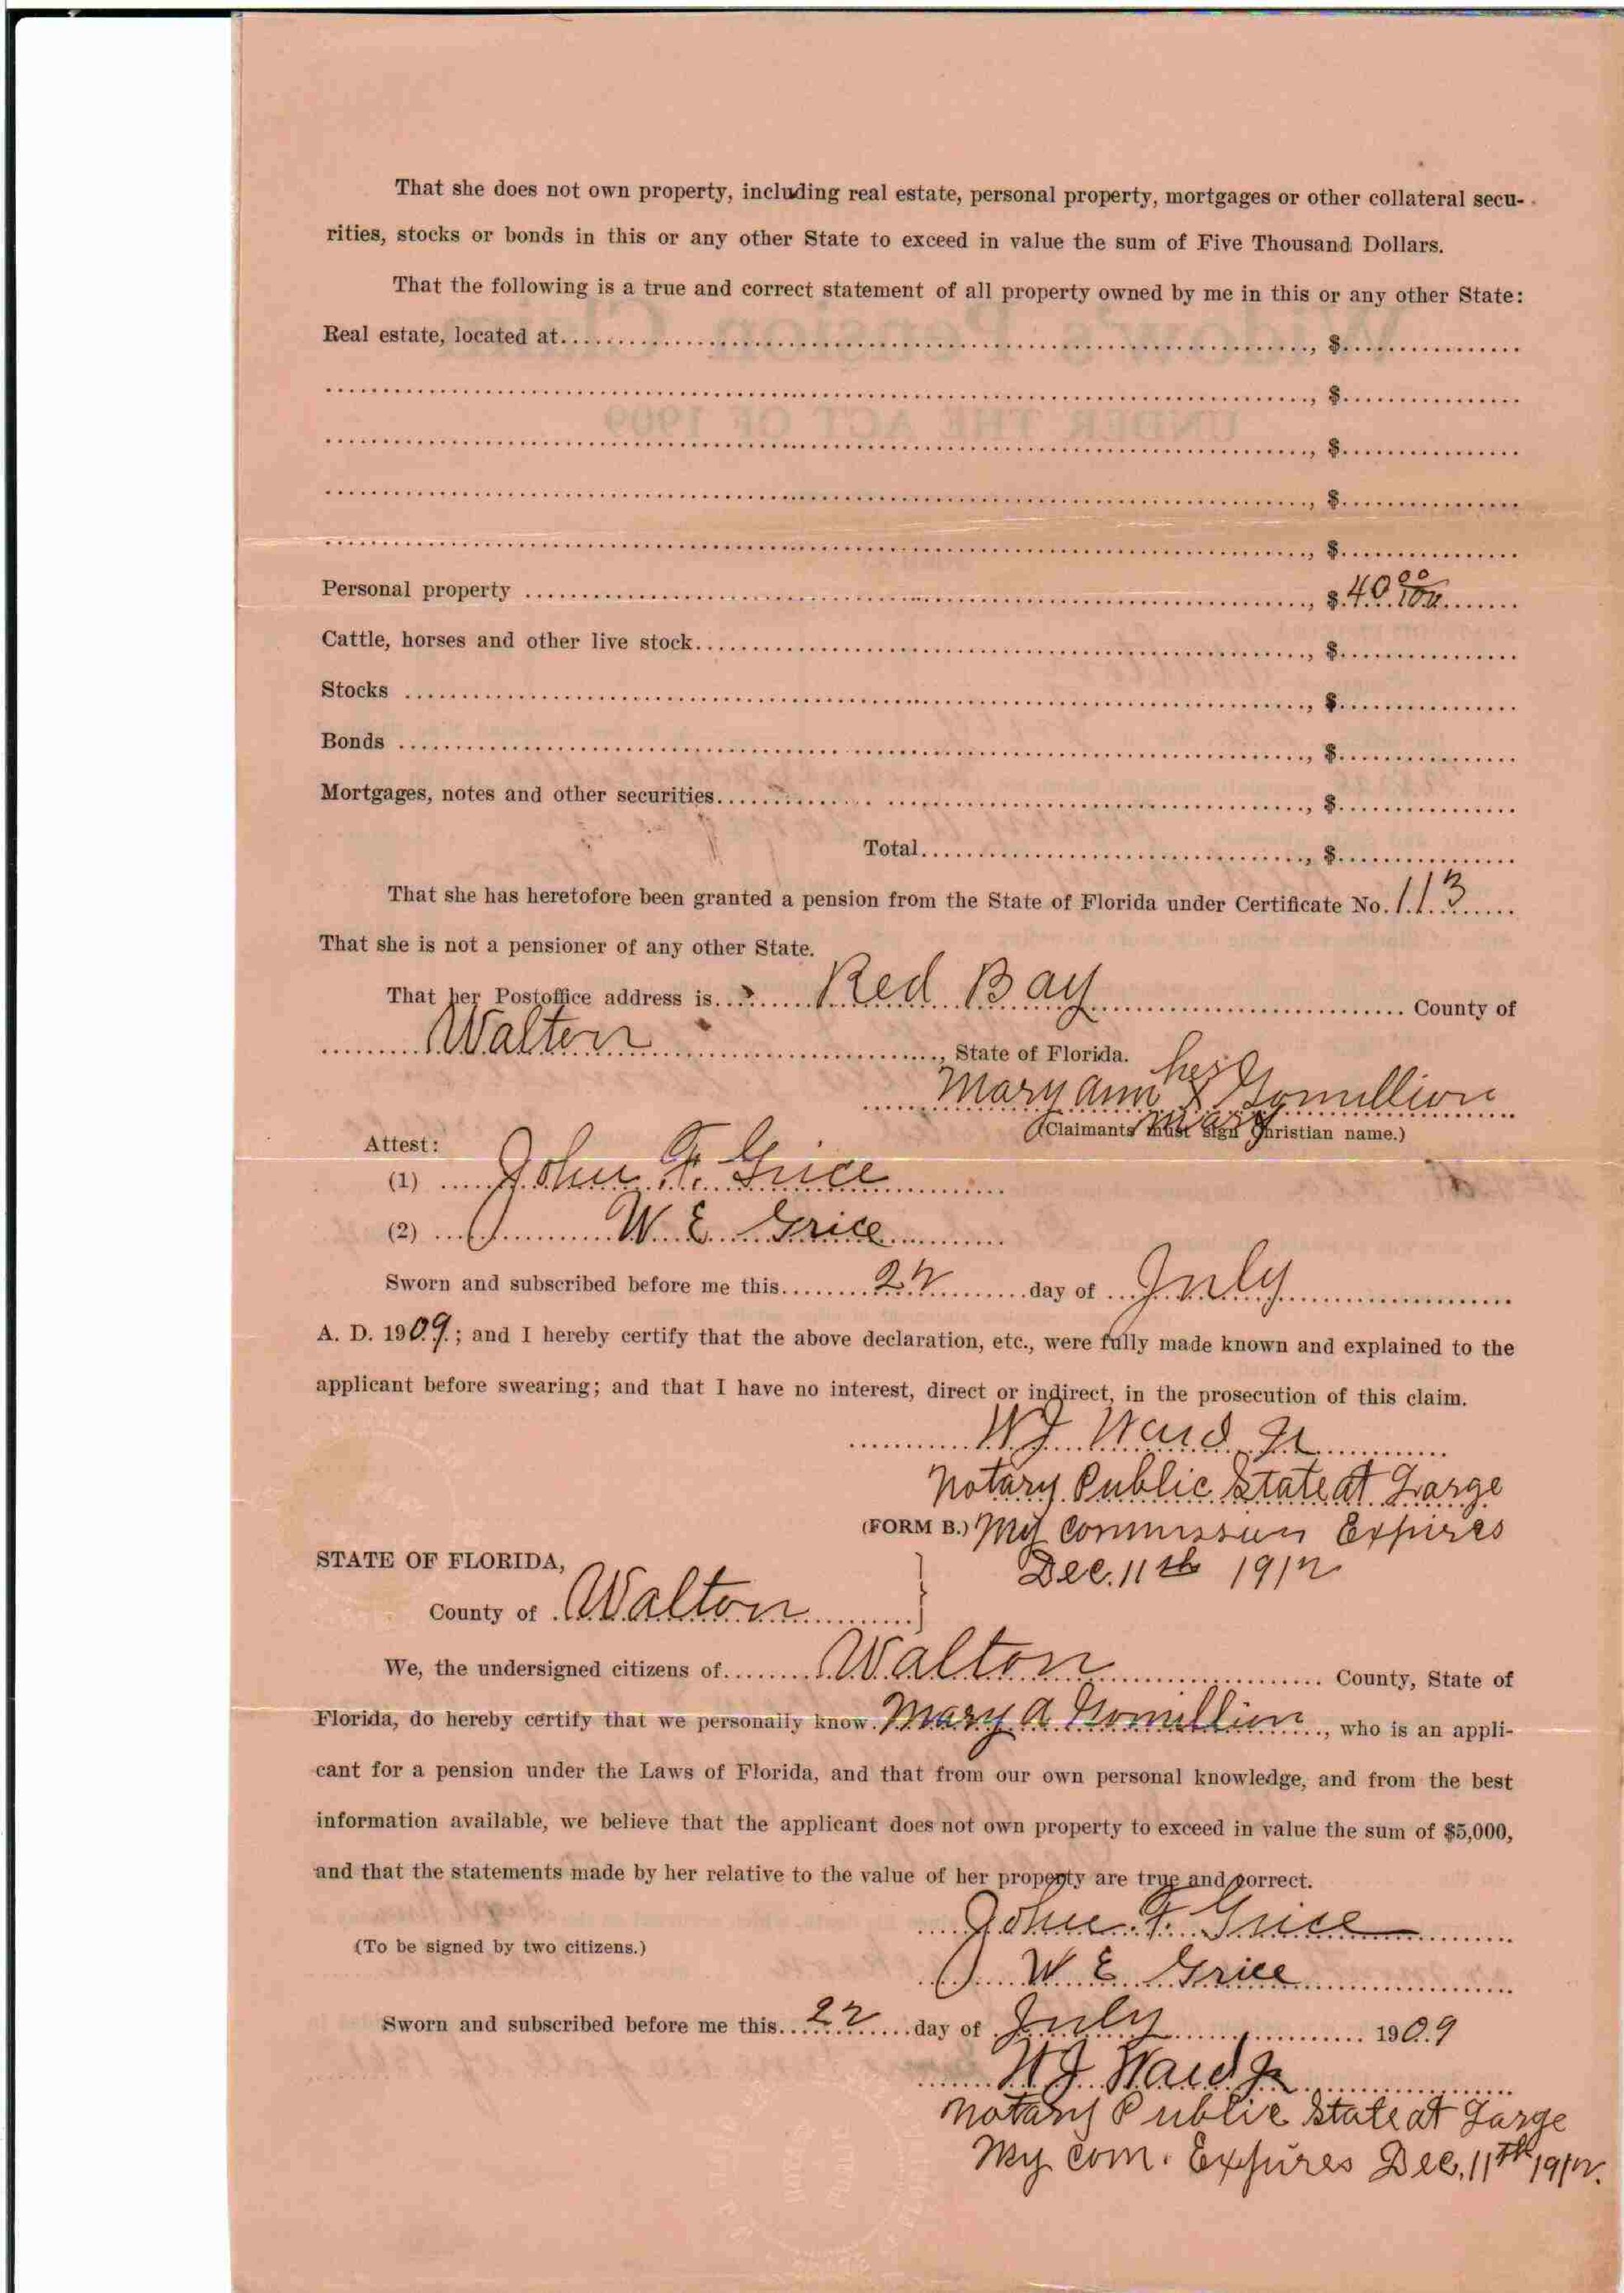 That she does not own property, including real estate, personal property, mortgages or other collateral secu-
rities, stocks or bonds in this or any other State to exceed in value the sum of Five Thousand Dollars.
That the following is a true and correct statement of all property owned by me in this or any other State:
Real estate, located at...................., $..........
...................., $..........
...................., $..........
...................., $..........
...................., $..........
Personal property ...................., $ 40 00/100
Cattle, horses and other live stock...................., $..........
Stocks ...................., $..........
Bonds ...................., $..........
Mortgages, notes and other securities...................., $..........
Total...................., $..........
That she has heretofore been granted a pension from the State of Florida under Certificate No. 113
That she is not a pensioner of any other State.
That her Postoffice address is Red Bay County of
Walton, State of Florida.
her
Mary Ann X Gomillion
mark
(Claimants must sign Christian name.)
Attest:
(1) John F. Grice
(2) W. E. Grice
Sworn and subscribed before me this 22 day of July
A. D. 1909; and I hereby certify that the above declaration, etc., were fully made known and explained to the
applicant before swearing; and that I have no interest, direct or indirect, in the prosecution of this claim.
W J Ward Jr
Notary Public State at Large
(FORM B.) My Commission Expires
Dec. 11th 1912
STATE OF FLORIDA,
County of Walton
We, the undersigned citizens of Walton County, State of
Florida, do hereby certify that we personally know Mary A Gomillion, who is an appli-
cant for a pension under the Laws of Florida, and that from our own personal knowledge, and from the best
information available, we believe that the applicant does not own property to exceed in value the sum of $5,000,
and that the statements made by her relative to the value of her property are true and correct.
John F. Grice
(To be signed by two citizens.)
W. E. Grice
Sworn and subscribed before me this 22 day of July 1909
W J Ward Jr
Notary Public State at Large
My Com. Expires Dec. 11th 1912.